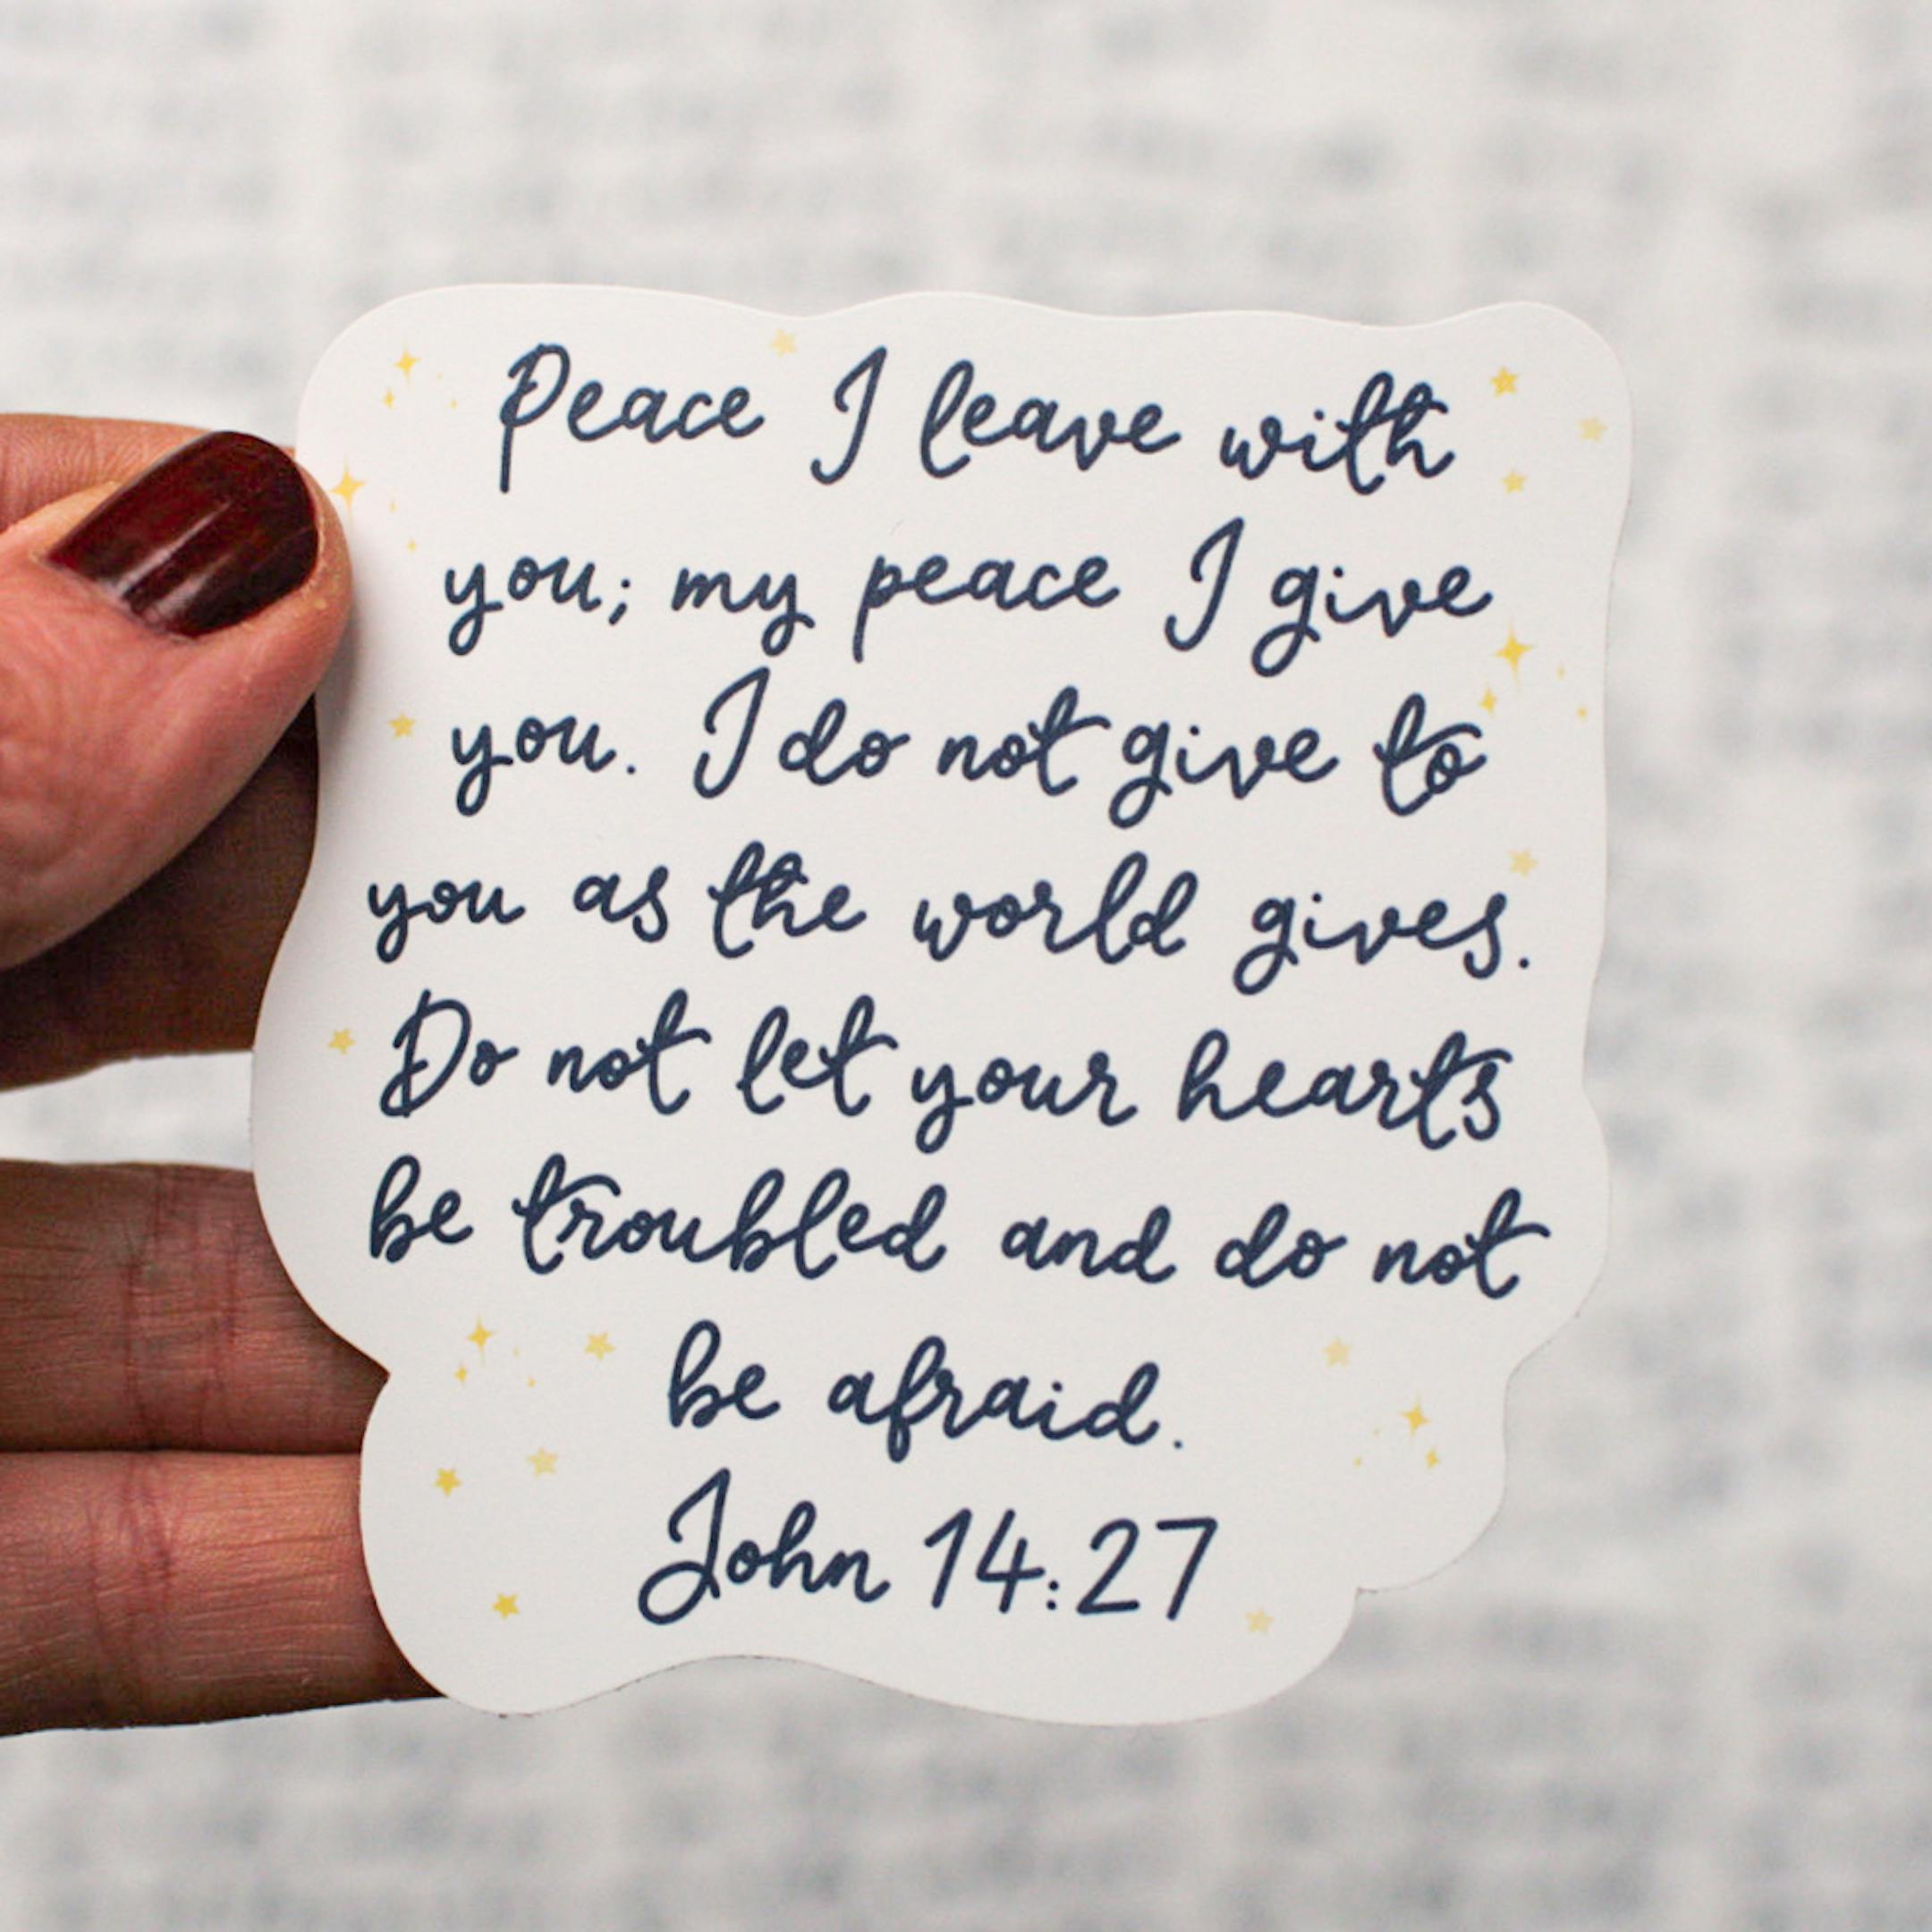 Peace I leave with
you; my peace I give
you. I do not give to
you as the world gives.
Do not let your hearts
be troubled and do not
be afraid.
John 14:27